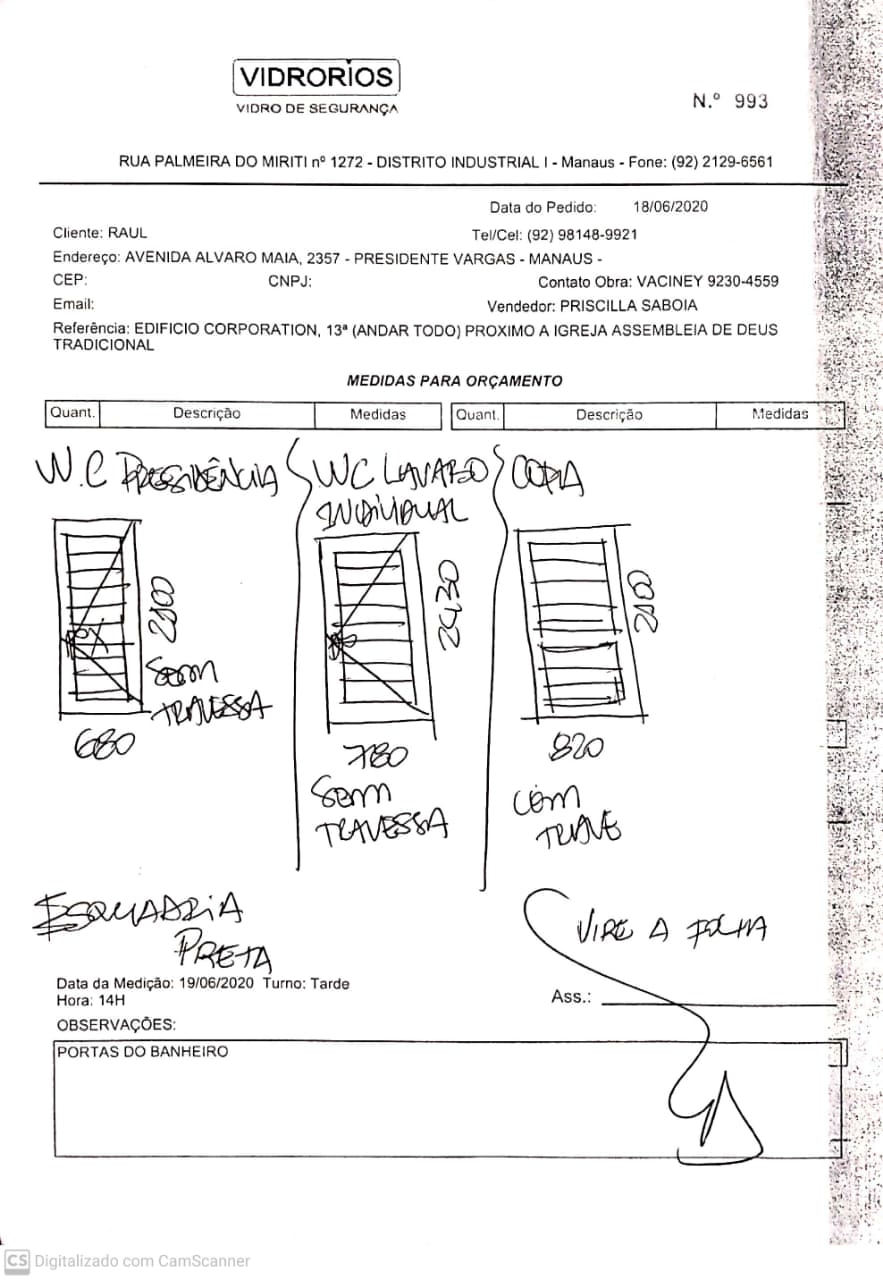 VIDRORIOS
VIDRO DE SEGURANÇA
N.º 993
RUA PALMEIRA DO MIRITI nº 1272 - DISTRITO INDUSTRIAL I - Manaus - Fone: (92) 2129-6561
Data do Pedido: 18/06/2020
Cliente: RAUL
Tel/Cel: (92) 98148-9921
Endereço: AVENIDA ALVARO MAIA, 2357 - PRESIDENTE VARGAS - MANAUS -
CEP: CNPJ: Contato Obra: VACINEY 9230-4559
Email: Vendedor: PRISCILLA SABOIA
Referência: EDIFICIO CORPORATION, 13ª (ANDAR TODO) PROXIMO A IGREJA ASSEMBLEIA DE DEUS
TRADICIONAL
MEDIDAS PARA ORÇAMENTO
Quant. Descrição Medidas Quant. Descrição Medidas
W.C PRESSIDÊNCIA
2100
SEM
TRAVESSA
680
WC LAVABO
INDIVIDUAL
2430
780
SEM
TRAVESSA
COPA
2100
820
COM
ESQUADRIA
PRETA
VIRE A FOLHA
Data da Medição: 19/06/2020 Turno: Tarde
Hora: 14H
Ass.:
OBSERVAÇÕES:
PORTAS DO BANHEIRO
CS Digitalizado com CamScanner